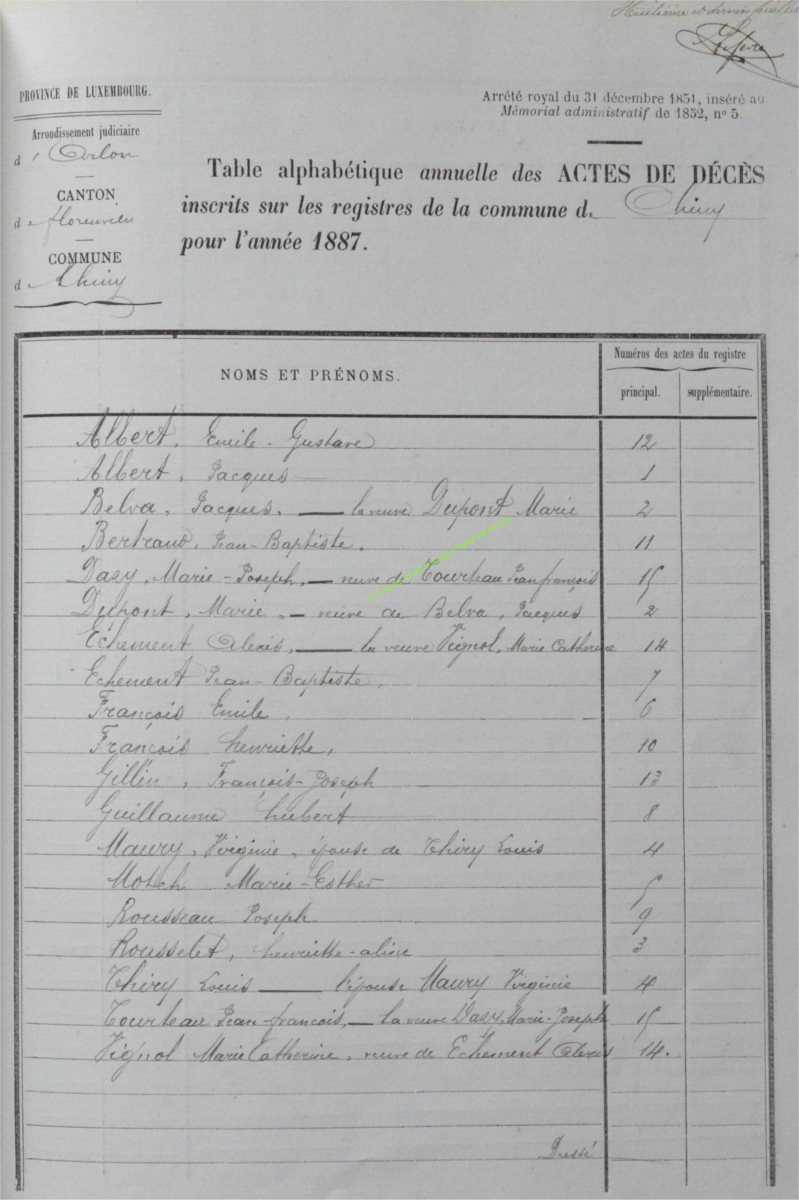 Huitième et dernier feuillet
PROVINCE DE LUXEMBOURG.
Arrondissement judiciaire
d'Arlon
CANTON
de florenville
COMMUNE
de Chiny
Arrêté royal du 31 décembre 1851, inséré au
Mémorial administratif de 1852, nº 5.
Table alphabétique annuelle des ACTES DE DÉCÈS
inscrits sur les registres de la commune de Chiny
pour l'année 1887.
NOMS ET PRÉNOMS.
Numéros des actes du registre
principal. supplémentaire.
Albert, Emile-Gustave 12
Albert, Jacques 1
Belva, Jacques, — la veuve Dupont Marie 2
Bertrand, Jean-Baptiste, 11
Dasy, Marie-Joseph, — veuve de Tourteau Jean françois 15
Dupont, Marie, — veuve de Belva, Jacques 2
Echement Alexis, — la veuve Vignol, Marie Catherine 14
Echement Jean-Baptiste, 7
François Emile, 6
François henriette, 10
Gillin, François-Joseph 13
Guillaume hubert 8
Maury, Virginie, épouse de Thiry Louis 4
Motch Marie-Esther 5
Rousseau Joseph 9
Rousselet, henriette-aline 3
Thiry Louis — l'épouse Maury Virginie 4
Tourteau Jean-françois, — la veuve Dasy, Marie-Joseph 15
Vignol Marie Catherine, veuve de Echement Alexis 14.
Dressé